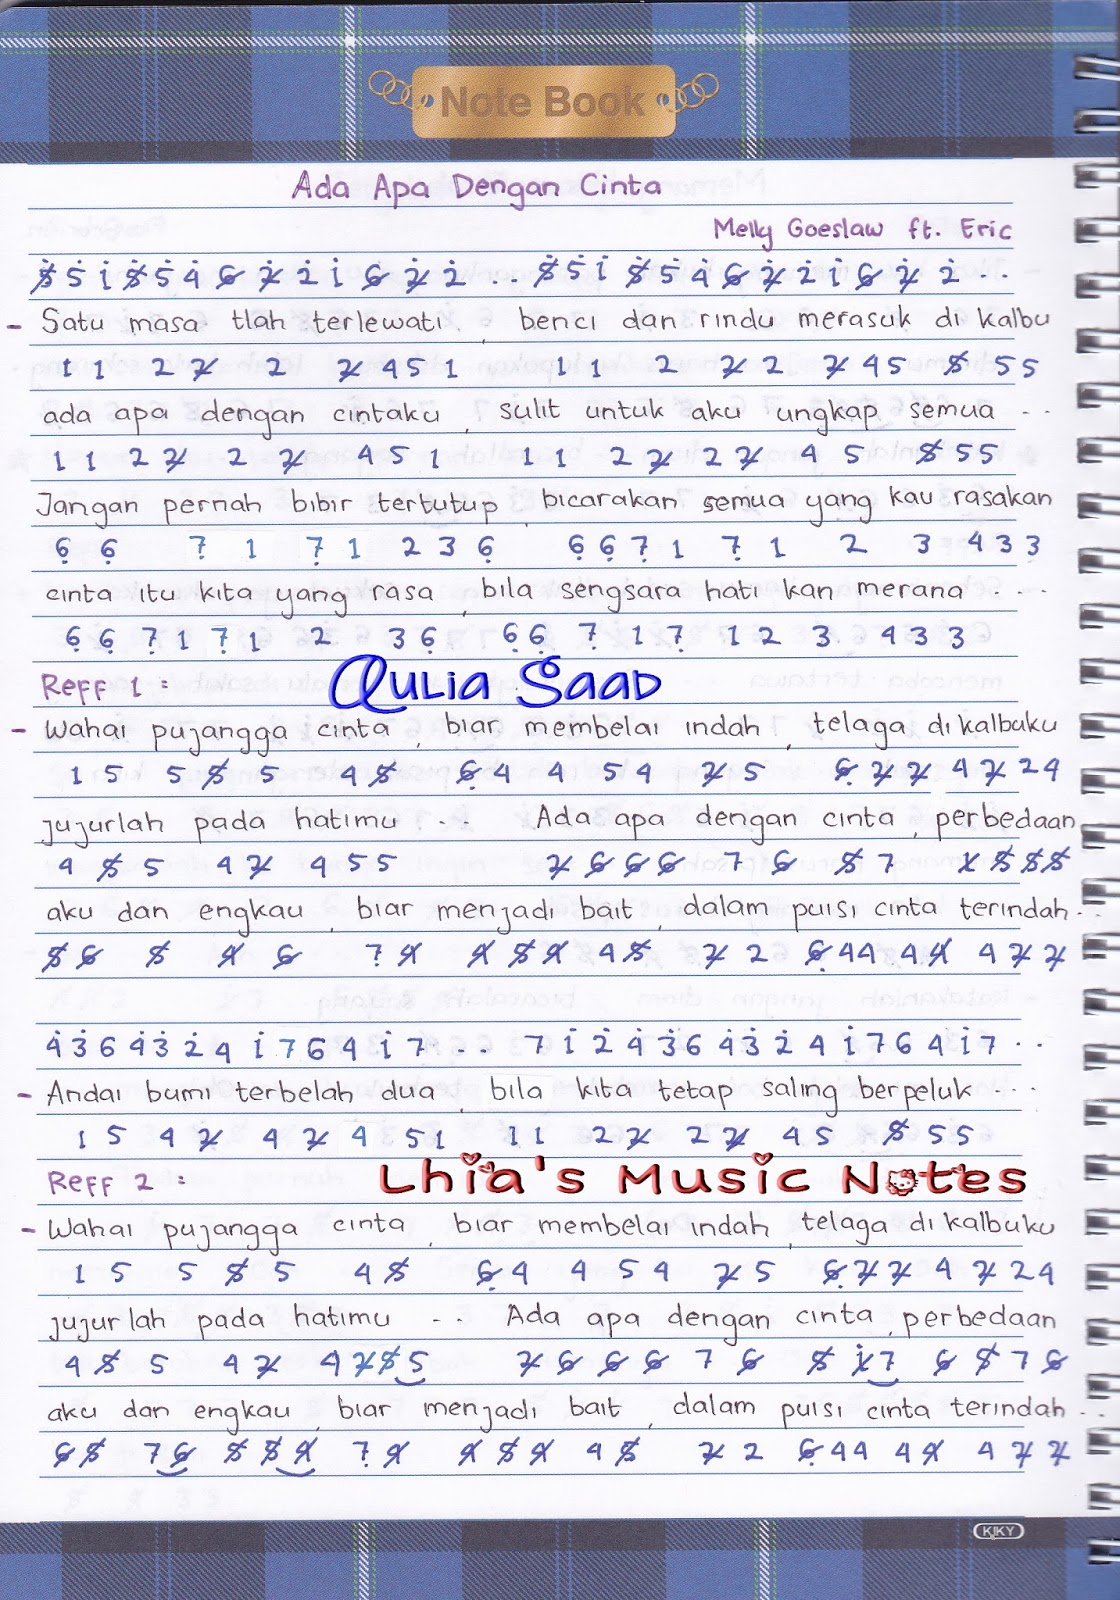 Note Book
Ada Apa Dengan Cinta
Melly Goeslaw ft. Eric
5̸̇ 5̇ 1̇ 5̸̇ 5̇ 4̇ 6̸ 2̸̇ 2̇ 1̇ 6̸ 2̸̇ 2̇ .. 5̸̇ 5̇ 1̇ 5̸̇ 5̇ 4̇ 6̸ 2̸̇ 2̇ 1̇ 6̸ 2̸̇ 2̇ ..
- Satu masa tlah terlewati, benci dan rindu merasuk di kalbu
1 1 2 2̸ 2 2̸ 4 5 1 1 1 2 2̸ 2 2̸ 4 5 5̸ 5 5
ada apa dengan cintaku, sulit untuk aku ungkap semua ..
1 1 2 2̸ 2 2̸ 4 5 1 1 1 2 2̸ 2 2̸ 4 5 5̸ 5 5
Jangan pernah bibir tertutup, bicarakan semua yang kau rasakan
6̣ 6̣ 7̣ 1 7̣ 1 2 3 6̣ 6̣ 6̣ 7̣ 1 7̣ 1 2 3 4 3 3
cinta itu kita yang rasa, bila sengsara hati kan merana ...
6̣ 6̣ 7̣ 1 7̣ 1 2 3 6̣ 6̣ 6̣ 7̣ 1 7̣ 1 2 3 4 3 3
Reff 1 :
Aulia Saad
- Wahai pujangga cinta, biar membelai indah, telaga di kalbuku
1 5 5 5̸ 5 4 5̸ 6̸̣ 4 4 5 4 2̸ 5 6̸̣ 2̸ 2̸ 4 2̸ 2 4
jujurlah pada hatimu .. Ada apa dengan cinta, perbedaan
4 5̸ 5 4 2̸ 4 5 5 2̸ 6̸ 6̸ 6̸ 7 6̸ 5̸ 7 1̸ 5̸ 5̸ 5̸
aku dan engkau, biar menjadi bait, dalam puisi cinta terindah ..
5̸ 6̸ 5̸ 4̸ 6̸ 7̣ 1̸ 1̸ 5̸ 4̸ 4 5̸ 2̸ 2 6̸̣ 4 4 4 1̸ 4 2̸ 2̸
4̇ 3̇ 6 4̇ 3̇ 2̇ 4 1̇ 7 6 4 1̇ 7 .. 7 1̇ 2̇ 4̇ 3̇ 6 4̇ 3̇ 2̇ 4 1̇ 7 6 4 1̇ 7 ..
- Andai bumi terbelah dua, bila kita tetap saling berpeluk ..
1 5 4 2̸ 4 2̸ 4 5 1 1 1 2 2̸ 2 2̸ 4 5 5̸ 5 5
Reff 2 :
Lhia's Music Notes
- Wahai pujangga cinta, biar membelai indah, telaga di kalbuku
1 5 5 5̸ 5 4 5̸ 6̸̣ 4 4 5 4 2̸ 5 6̸̣ 2̸ 2̸ 4 2̸ 2 4
jujurlah pada hatimu .. Ada apa dengan cinta, perbedaan
4 5̸ 5 4 2̸ 4 2̸ 5̸ 5 2̸ 6̸ 6̸ 6̸ 7 6̸ 5̸ 1̸̇ 7 6̸ 5̸ 7 6̸
aku dan engkau, biar menjadi bait, dalam puisi cinta terindah ..
6̸ 5̸ 7 6̸ 5̸ 5̸ 4̸ 7̣ 1̸ 1̸ 5̸ 4̸ 4 5̸ 2̸ 2 6̸̣ 4 4 4 1̸ 4 2̸ 2̸
KIKY